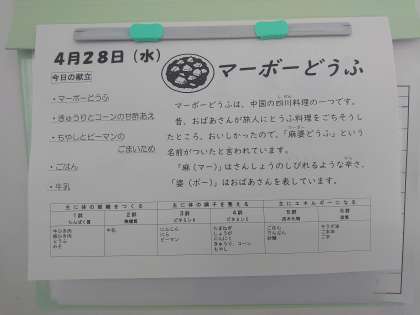 4月28日（水）
今日の献立
マーボーどうふ
・マーボーどうふ
・きゅうりとコーンの甘酢あえ
・もやしとピーマンの
ごまいため
・ごはん
・牛乳
マーボーどうふは、中国の四川料理の一つです。
昔、おばあさんが旅人にとうふ料理をごちそうし
たところ、おいしかったので、「麻婆どうふ」という
名前がついたと言われています。
「麻（マー）」はさんしょうのしびれるような辛さ、
「婆（ボー）」はおばあさんを表しています。
主に体の組織をつくる 主に体の調子を整える 主にエネルギーになる
1群 2群 3群 4群 5群 6群
たんぱく質 無機質 ビタミンA ビタミンC 炭水化物 脂質
とうふ
みそ
牛乳
にんじん
にら
ピーマン
しょうが
にんにく
きゅうり、コーン
もやし
ごはん
でんぷん
砂糖
ごま油
ごま